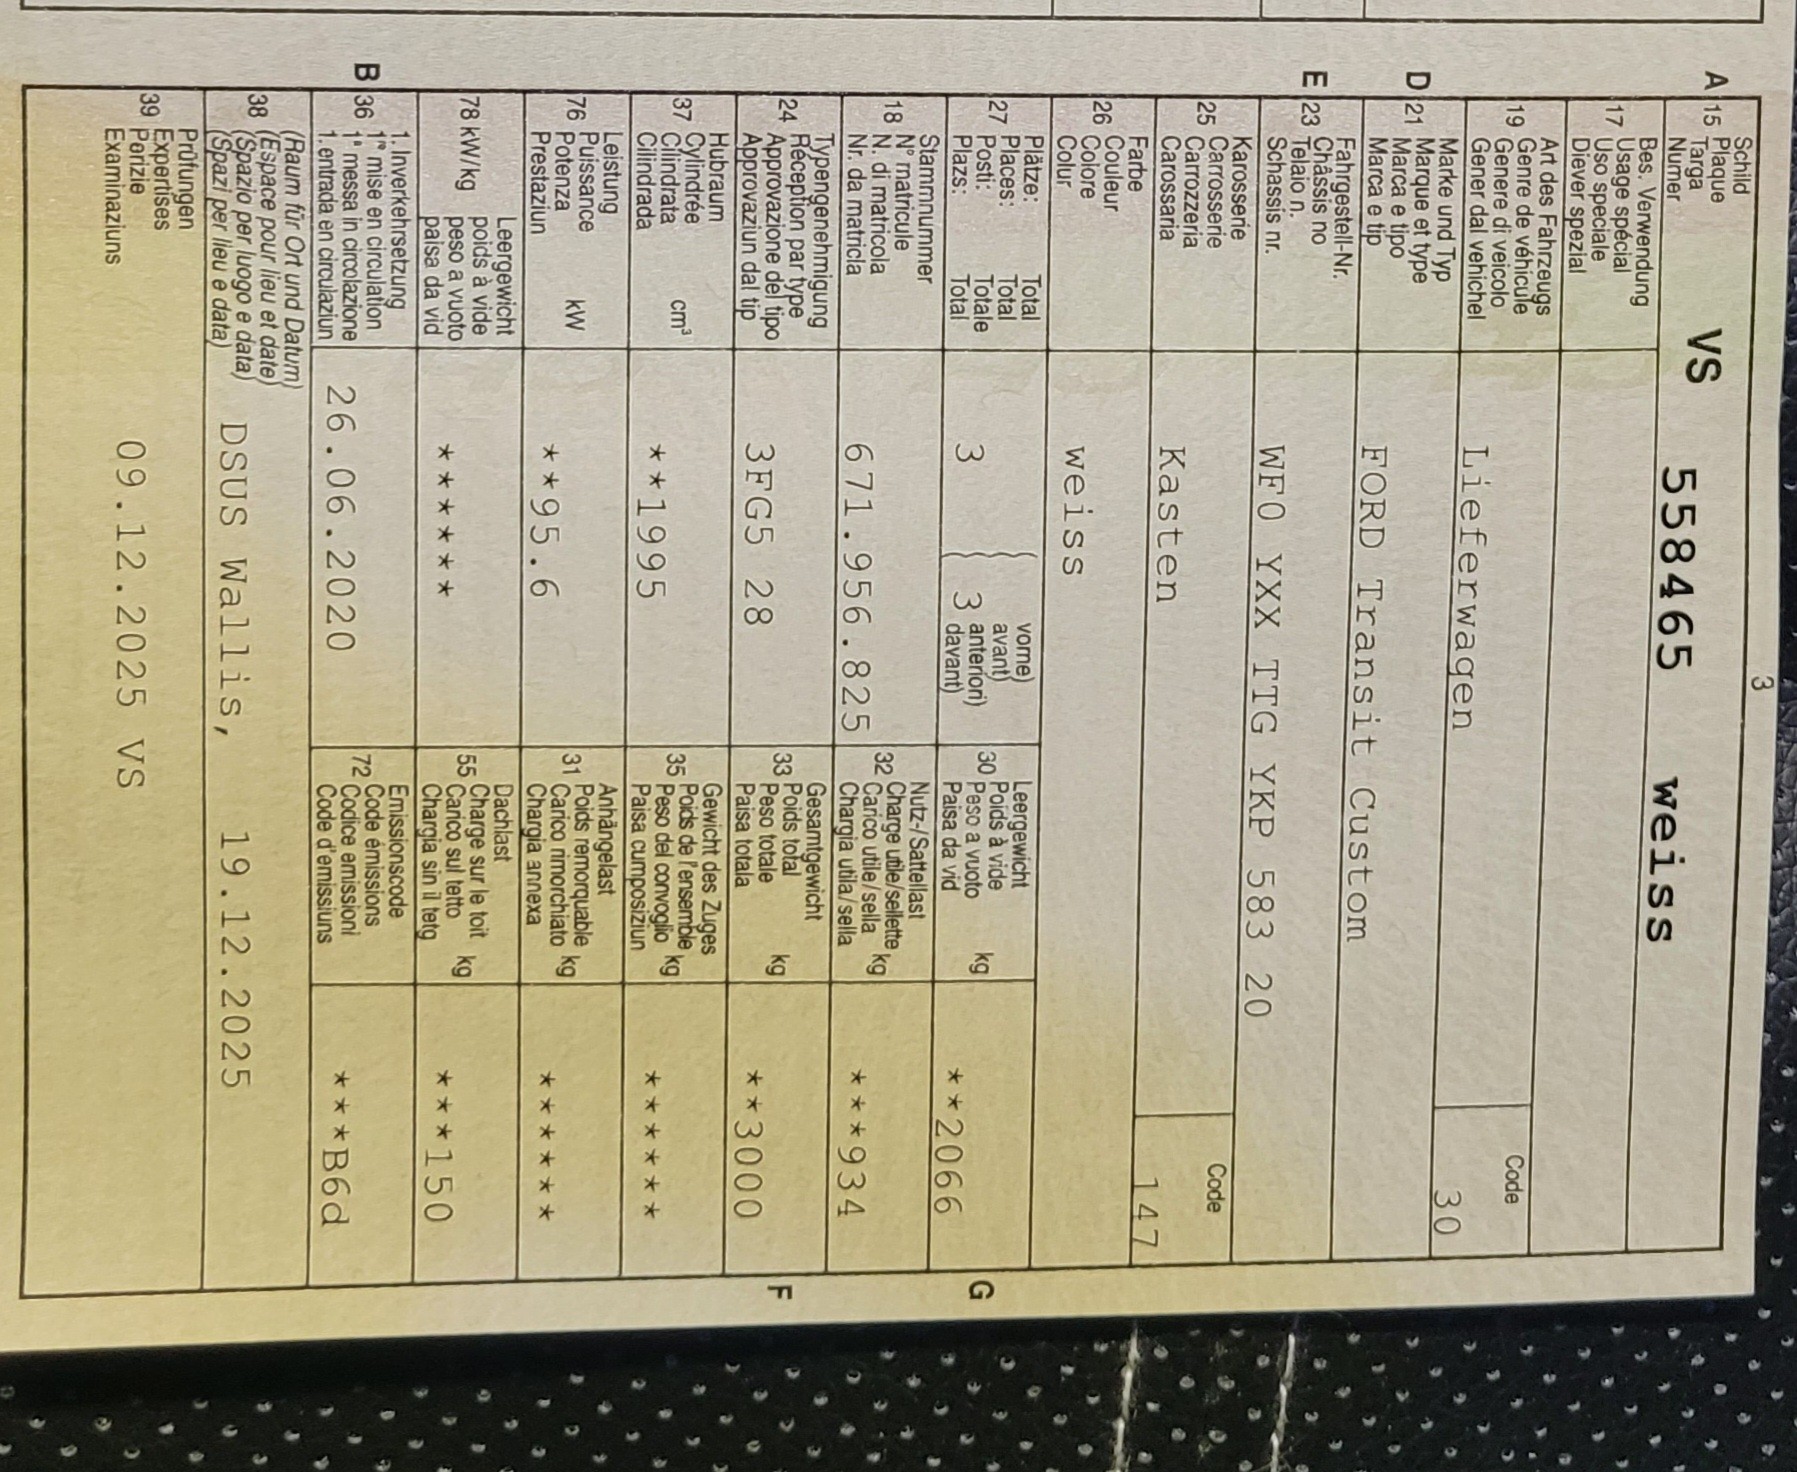 3
A 15 Schild Plaque Targa Numer VS 558465 weiss
17 Bes. Verwendung Usage spécial Uso speciale Diever spezial
19 Art des Fahrzeugs Genre de véhicule Genere di veicolo Gener dal vehichel Lieferwagen Code 30
D 21 Marke und Typ Marque et type Marca e tipo Marca e tip FORD Transit Custom
E 23 Fahrgestell-Nr. Châssis no Telaio n. Schassis nr. WF0 YXX TTG YKP 583 20
25 Karosserie Carrosserie Carrozzeria Carossaria Kasten Code 147
26 Farbe Couleur Colore Colur weiss
27 Plätze: Total Places: Total Posti: Totale Plazs: Total 3 3 vorne) avant) anteriori) davant)
30 Leergewicht Poids à vide Peso a vuoto Paisa da vid kg **2066 G
18 Stammnummer N° matricule N. di matricola Nr. da matricla 671.956.825
32 Nutz-/Sattellast Charge utile/sellette Carico utile/sella Chargia utila/sella kg ***934
24 Typengenehmigung Réception par type Approvazione del tipo Approvaziun dal tip 3FG5 28
33 Gesamtgewicht Poids total Peso totale Paisa totala kg **3000 F
37 Hubraum Cylindrée Cilindrata Cilindrada cm³ **1995
35 Gewicht des Zuges Poids de l'ensemble Peso del convoglio Paisa cumposiziun kg ******
76 Leistung Puissance Potenza Prestaziun kW **95.6
31 Anhängelast Poids remorquable Carico rimorchiato Chargia annexa kg ******
78 kW/kg Leergewicht poids à vide peso a vuoto paisa da vid ******
55 Dachlast Charge sur le toit Carico sul tetto Chargia sin il tetg kg ***150
B 36 1. Inverkehrsetzung 1re mise en circulation 1a messa in circolazione 1. entrada en circulaziun 26.06.2020
72 Emissionscode Code émissions Codice emissioni Code d'emissiuns ***B6d
38 (Raum für Ort und Datum) (Espace pour lieu et date) (Spazio per luogo e data) (Spazi per lieu e data) DSUS Wallis, 19.12.2025
39 Prüfungen Expertises Perizie Examinaziuns 09.12.2025 VS